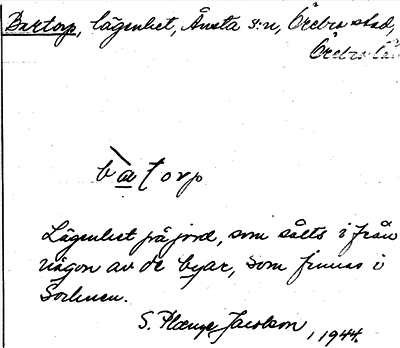 Bartorp, lägenhet, Ånsta s:n, Örebro stad,
Örebro lä
bàtorp
Lägenhet på jord, som sålts ifrån
någon av de byar, som finnas i
Socknen.
S. Plænge Jacobson, 1944.